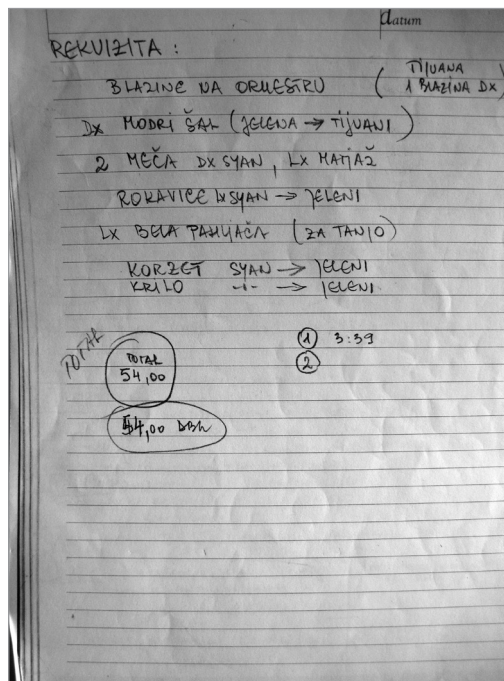 datum
REKVIZITA :
BLAZINE NA ORKESTRU ( TIJUANA
1 BLAZINA DX )
DX MODRI ŠAL (JELENA → TIJUANI)
2 MEČA DX SYAN, LX MATJAŽ
ROKAVICE LX SYAN → JELENI
LX BELA PAHLJAČA (ZA TANJO)
KORZET SYAN → JELENI
KRILO -"- → JELENI
① 3:39
TOTAL
TOTAL
②
54,00
54,00